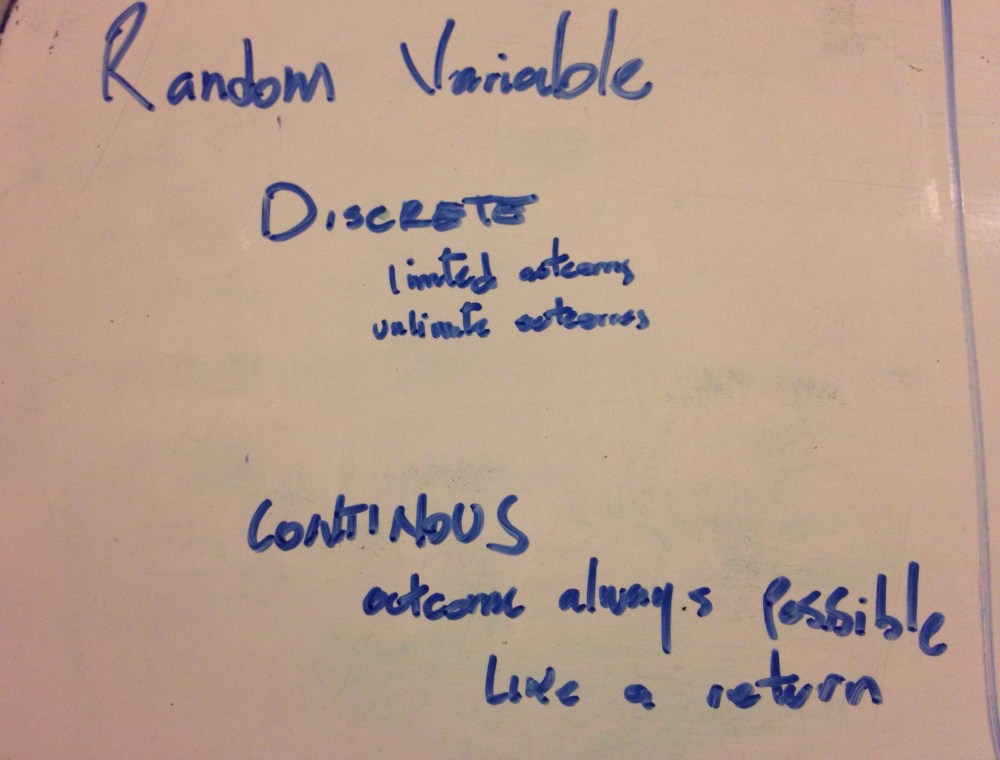 Random Variable
DISCRETE
limited outcomes
unlimite outcomes
CONTINOUS
outcome always possible
Like a return